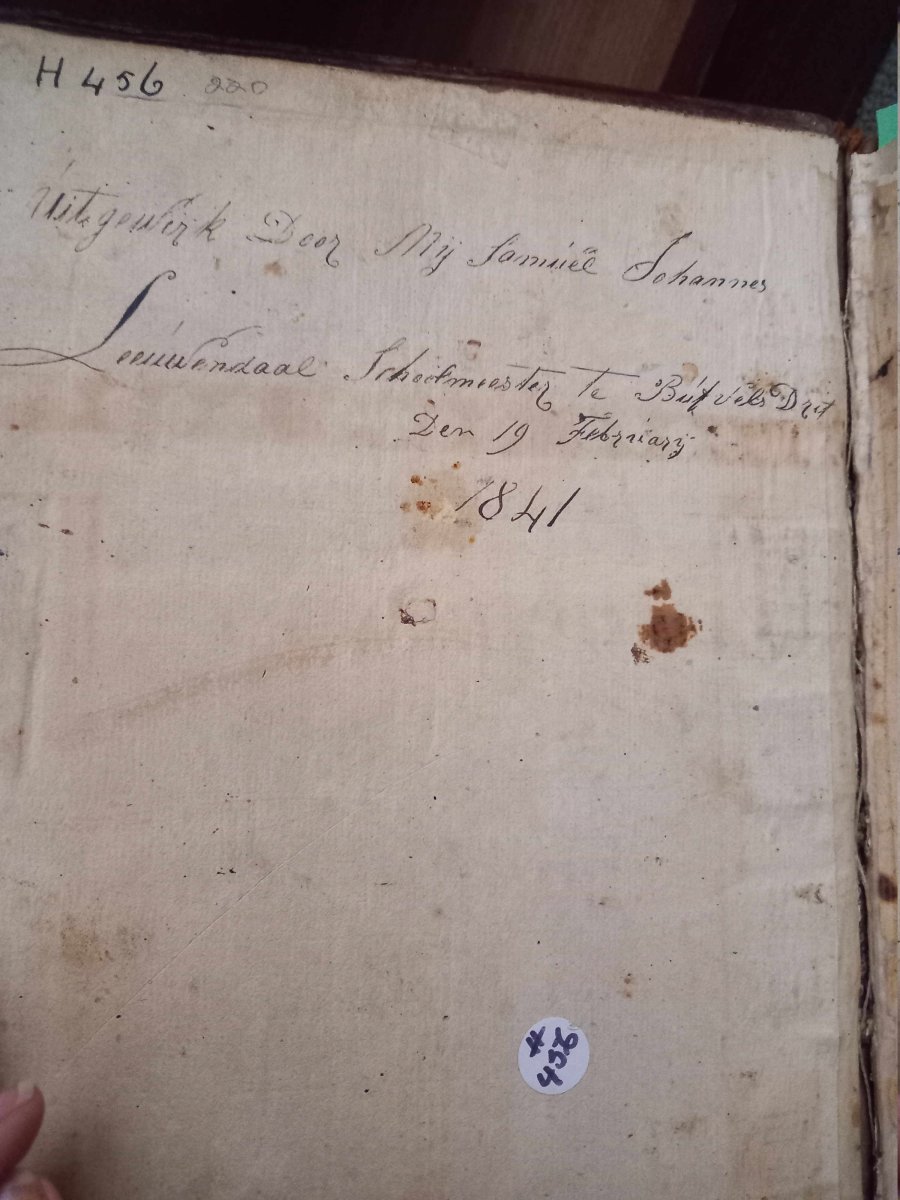 H 456 220
Uitgewerk Door Mij Samuël Johannes
Leeuwendaal Schoolmeester Te
Den 19 February
1841
H
456